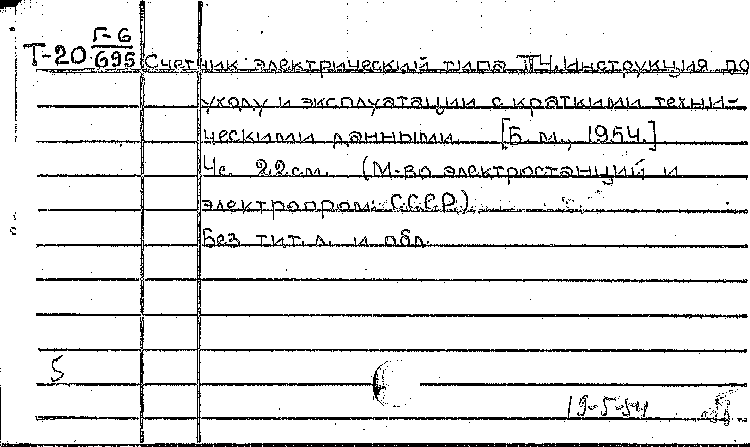 Т-20 Г-6
695
Счетчик электрический типа ТЧ. Инструкция по
уходу и эксплуатации с краткими техни-
ческими данными. [Б.м., 1954.]
4с. 22см. (М-во электростанций и
электропром. СССР)
Без тит. л. и обл.
5
19-5-54